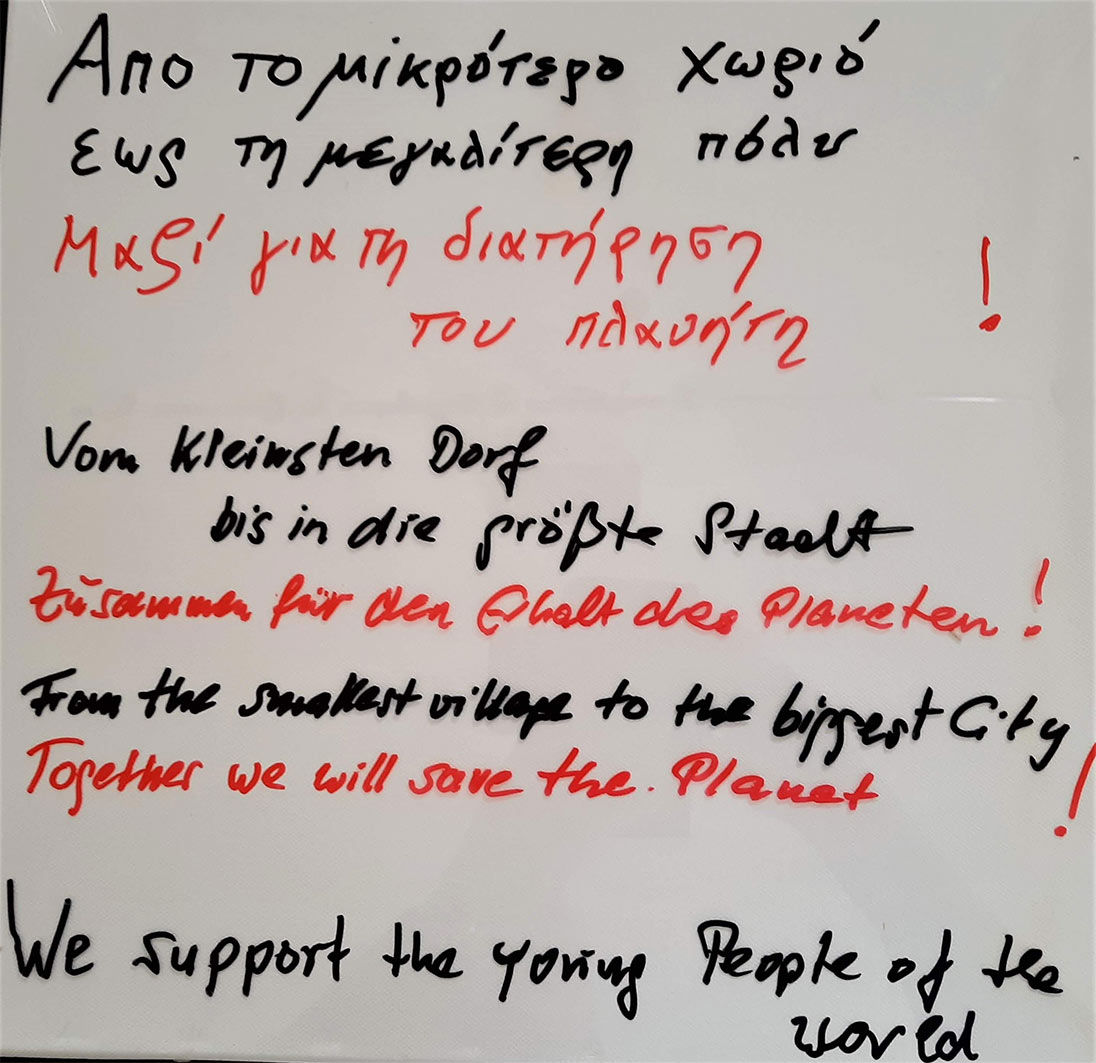 Απο το μικρότερο χωριό
εως τη μεγαλίτερη πόλυ
Μαζί για τη διατήρηση
του πλανήτη !
Vom Kleinsten Dorf
bis in die größte Stadt
Zusammen für den Erhalt des Planeten !
From the smallest village to the biggest City
Together we will save the Planet !
We support the young People of the
world